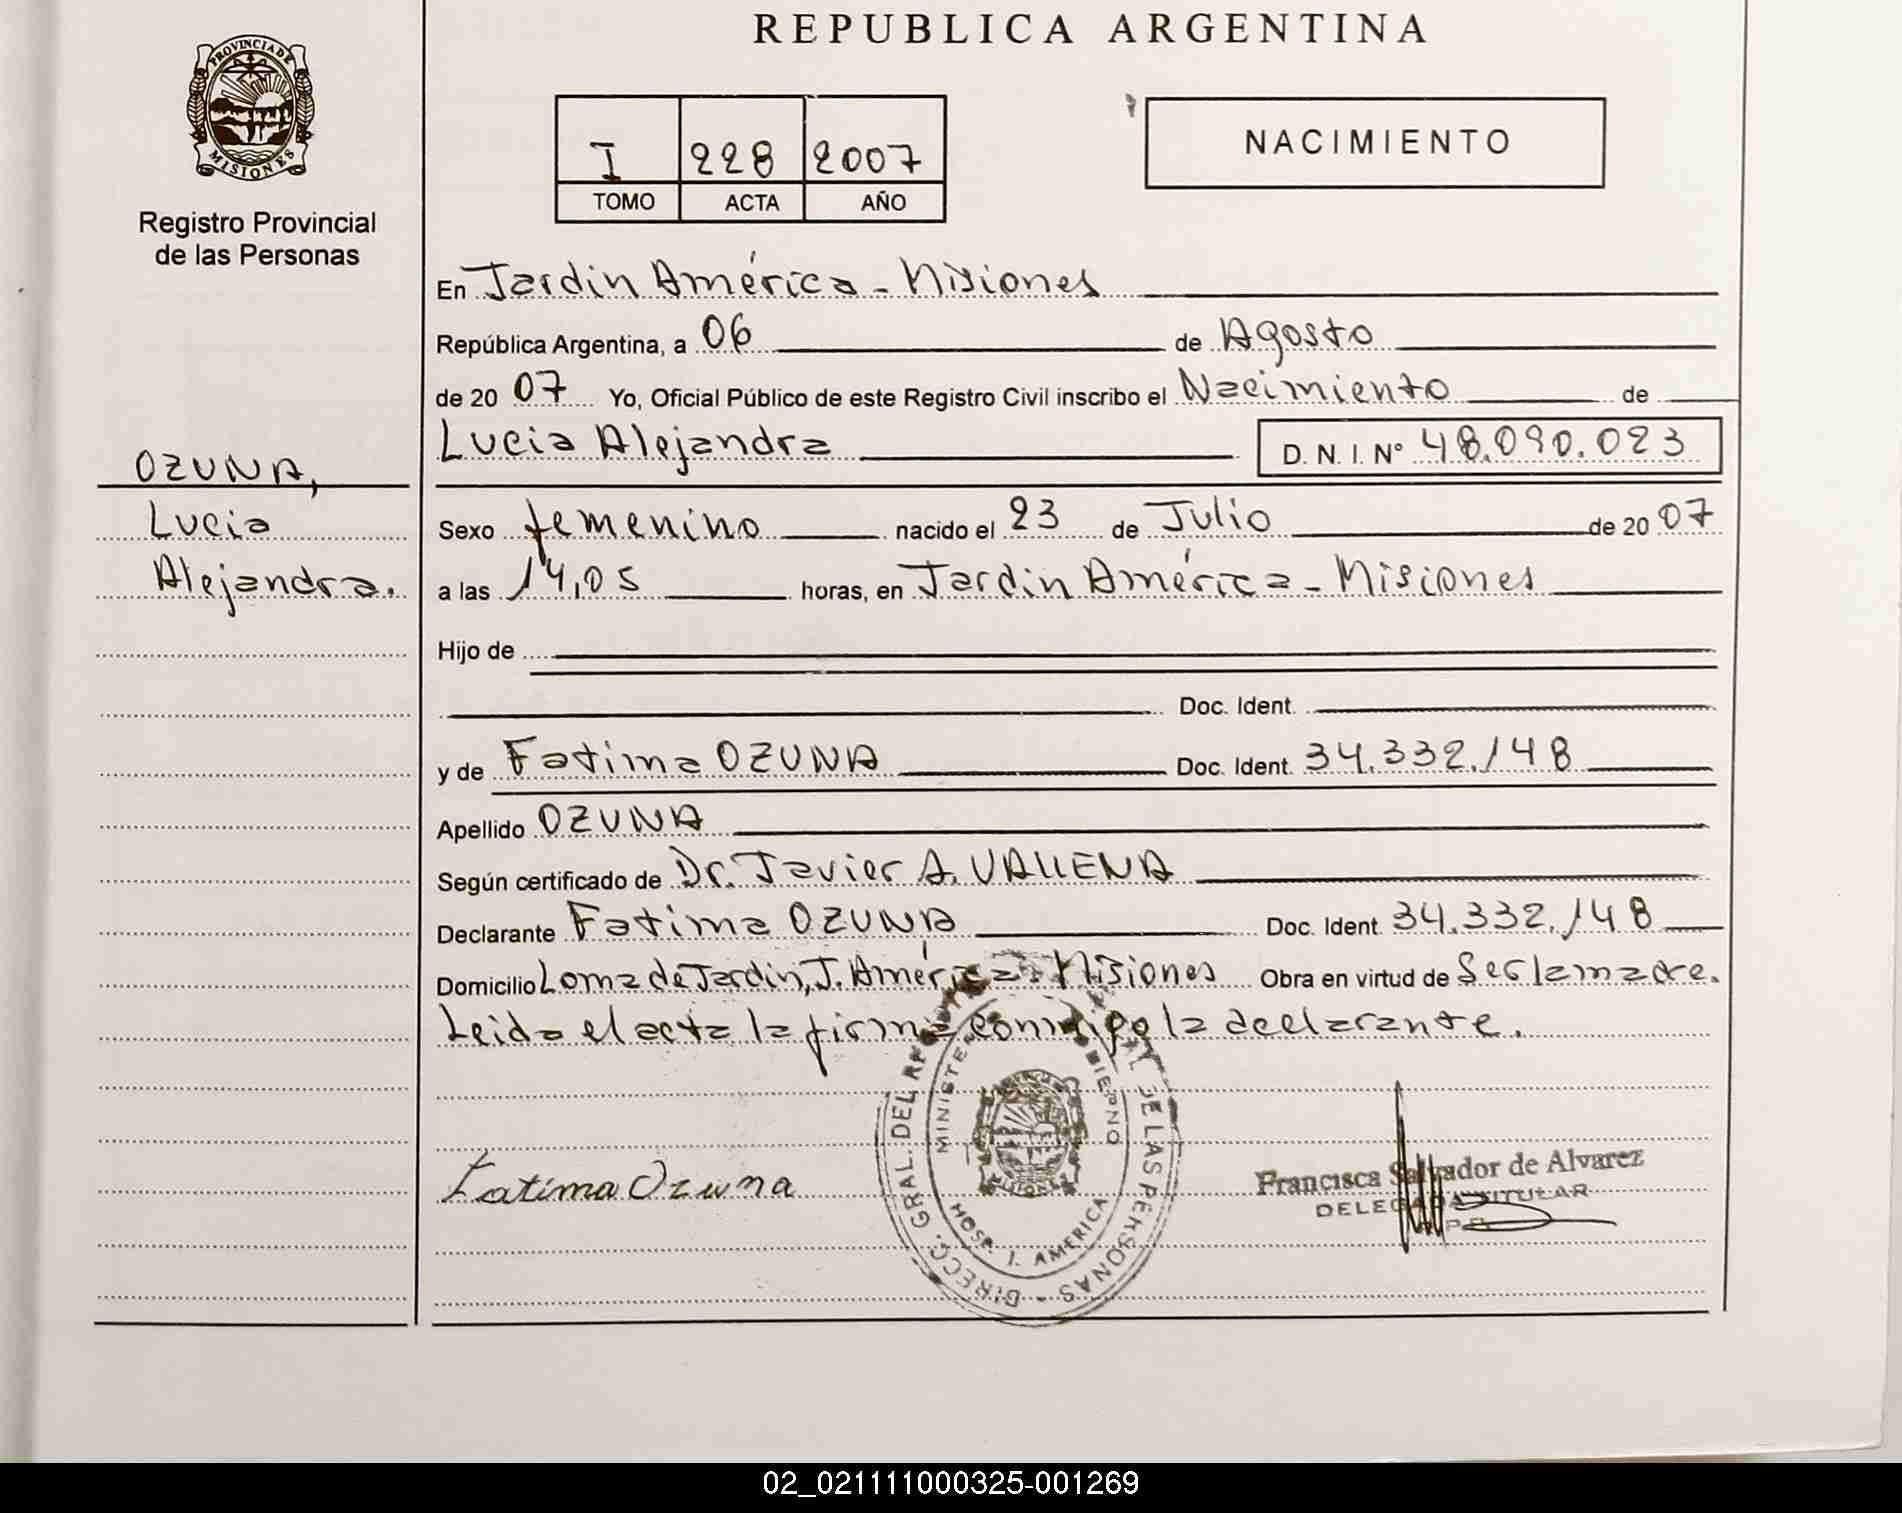 REPUBLICA ARGENTINA
PROVINCIA DE MISIONES
Registro Provincial
de las Personas
I 228 2007
TOMO ACTA AÑO
NACIMIENTO
En Jardin América - Misiones
República Argentina, a 06 de Agosto
de 20 07 Yo, Oficial Público de este Registro Civil inscribo el Nacimiento de
Lucia Alejandra D. N. I. N° 48.090.023
OZUNA,
Lucia
Alejandra.
Sexo femenino nacido el 23 de Julio de 20 07
a las 14,05 horas, en Jardin América - Misiones
Hijo de
Doc. Ident.
y de Fatima OZUNA Doc. Ident. 34.332.148
Apellido OZUNA
Según certificado de Dr. Javier A. VALLENA
Declarante Fatima OZUNA Doc. Ident 34.332.148
Domicilio Loma de Jardin, J. América - Misiones Obra en virtud de Ser la madre.
Leida el acta la firma conmigo la declarante.
Fatima Ozuna
DIRECC. GRAL. DEL DE LAS PERSONAS -
HOSP. J. AMERICA
Francisca Salvador de Alvarez
DELEGADA TITULAR
02_021111000325-001269